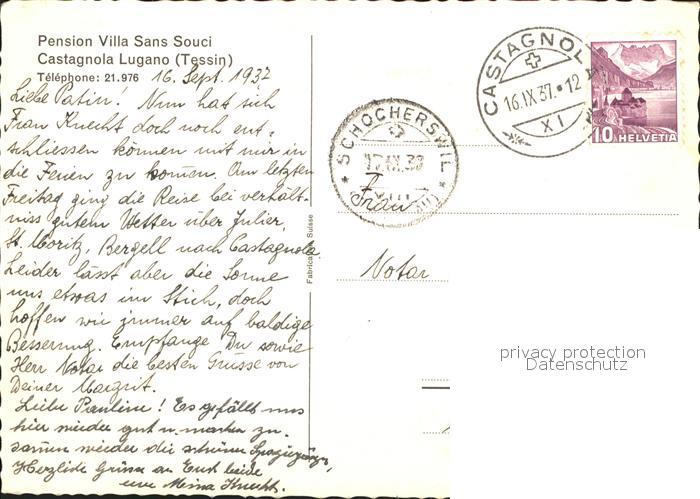 Pension Villa Sans Souci
Castagnola Lugano (Tessin)
Téléphone: 21.976 16. Sept. 1937
Liebe Patin! Nun hat sich
Frau Knecht doch noch ent-
schliessen können mit mir in
die Ferien zu kom̄en. Am letzten
Freitag ging die Reise bei verhält-
niss gutem Wetter über Julier,
St. Moritz, Bergell nach Castagnola.
Leider lässt aber die Sonne
uns etwas im Stich, doch
hoffen wir immer auf baldige
Besserung. Empfange Du sowie
Herr Notar die besten Grüsse von
Deiner Margrit.
Liebe Pauline! Es gefällt uns
hier wieder gut u. machen zu-
sam̄en wieder die schönen Spaziergänge,
Herzliche Grüsse an Euch beide
eure Mina Knecht.
Fabrica Suisse
CASTAGNOLA
16.IX.37.12
XI
SCHOCHERSWIL
10 HELVETIA
Frau
Notar
privacy protection
Datenschutz